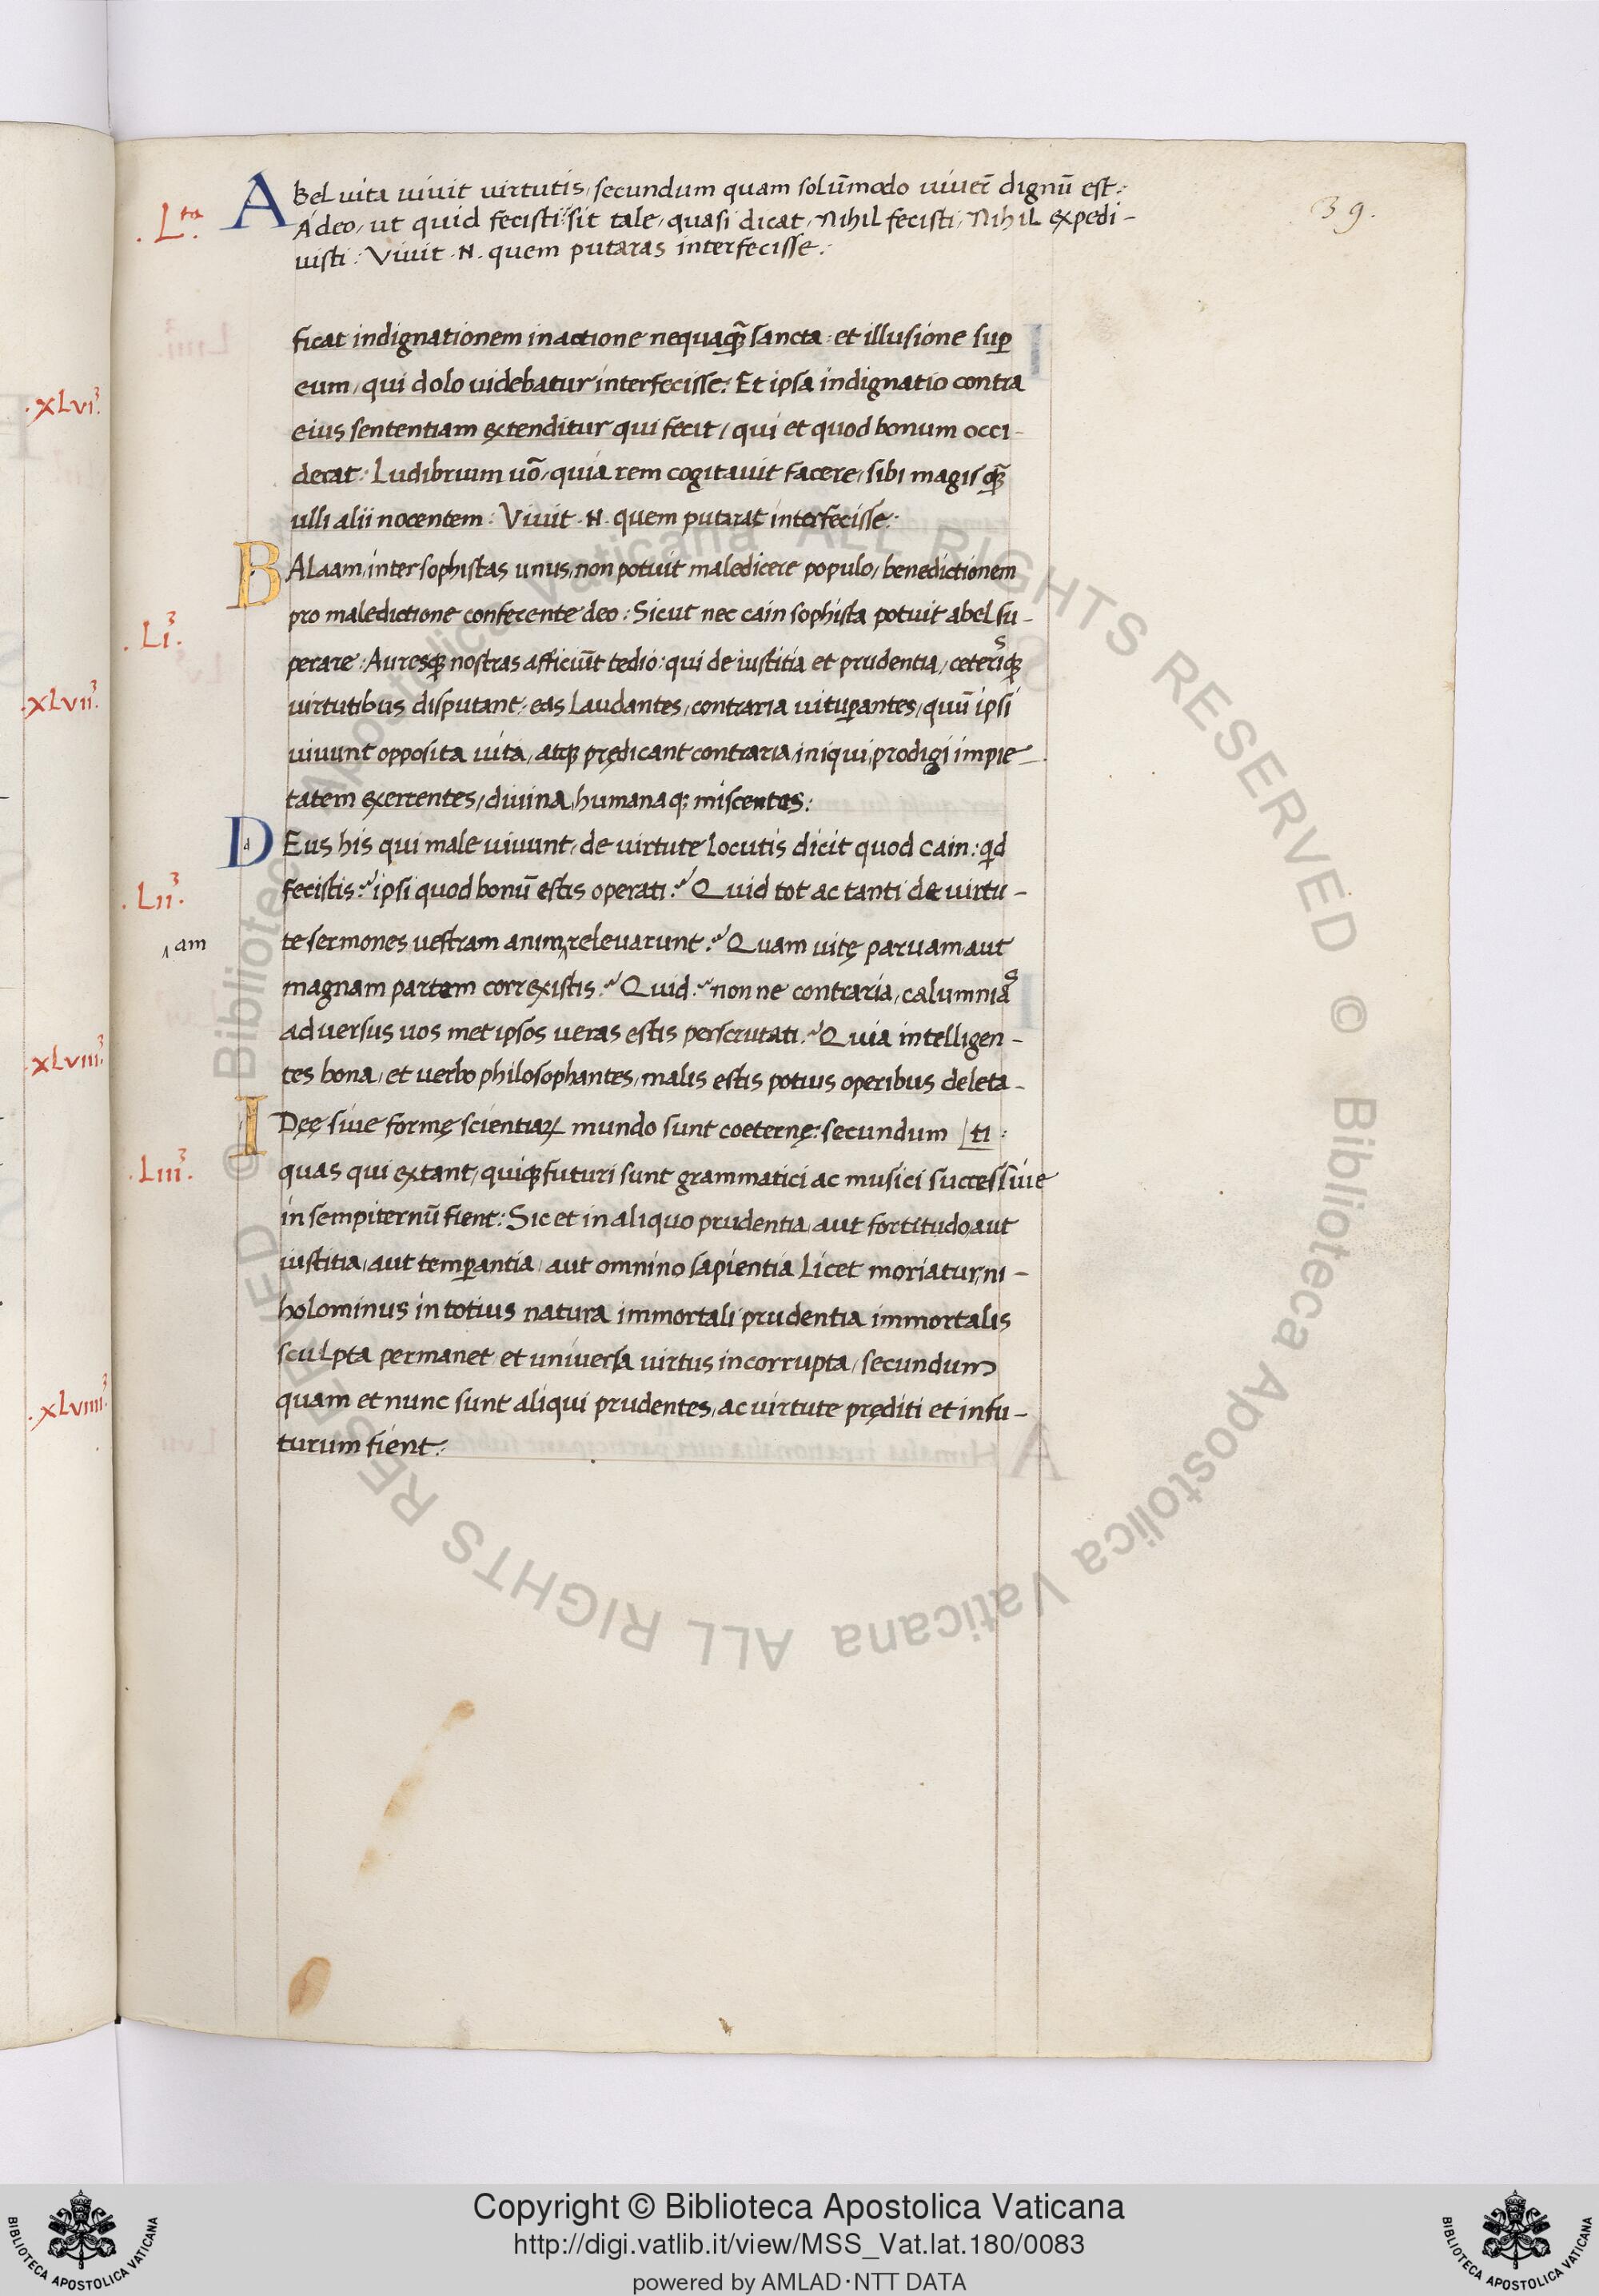 39.
.Lta.
ABel uita uiuit uirtutis, secundum quam solūmodo uiuer̄ dignū est:
Adeo, ut quid fecisti: sit tale, quasi dicat, Nihil fecisti, Nihil expedi-
uisti: Viuit .N. quem putaras interfecisse:
ficat indignationem in actione nequaq̃ sancta: et illusione sup̱
.xLvi3.
eum, qui dolo uidebatur interfecisse: Et ipsa indignatio contra
eius sententiam extenditur qui fecit, qui et quod bonum occi-
derat: Ludibrium uō, quia rem cogitauit facere, sibi magis q̃
ulli alii nocentem: Viuit .N. quem putarat interfecisse:
BALaam, inter sophistas unus, non potuit maledicere populo, benedictionem
pro maledictione conferente deo: Sicut nec cain sophista potuit abel su-
.Li3.
perare: Auresqꝫ nostras afficiūt tedio: qui de iustitia et prudentia, ceterisqꝫ
.xLvii3.
uirtutibus disputant: eas laudantes, contraria uitup̱antes, quū ipsi
uiuunt opposita uita, atqꝫ prędicant contraria, iniqui, prodigi impie-
tatem exercentes, diuina, humanaqꝫ miscentes:
DEus his qui male uiuunt, de uirtute locutis dicit quod cain: qid
.Lii3.
fecistis? ipsi quod bonū estis operati? Quid tot ac tanti de uirtu-
te sermones uestram anim‸releuarunt? Quam uitę paruam aut
‸am
magnam partem correxistis? Quid? non ne contraria, calumnias
aduersus uos met ipsos ueras estis perscrutati? Quia intelligen-
.xLviii3.
tes bona, et uerbo philosophantes, malis estis potius operibus deleta-
IDęę siue formę scientiaꝝ mundo sunt coeternę: secundum [ti:
.Liii3.
quas qui extant, quiqꝫ futuri sunt grammatici ac musici successiue
in sempiternū fient: Sic et in aliquo prudentia, aut fortitudo, aut
iustitia, aut temp̱antia, aut omnino sapientia licet moriatur, ni-
holominus in totius natura immortali prudentia immortalis
sculpta permanet et uniuersa uirtus incorrupta, secundum
.xLviiii3.
quam et nunc sunt aliqui prudentes, ac uirtute pręditi et in fu-
turum fient:
Copyright © Biblioteca Apostolica Vaticana
http://digi.vatlib.it/view/MSS_Vat.lat.180/0083
powered by AMLAD·NTT DATA
BIBLIOTECA APOSTOLICA VATICANA
BIBLIOTECA APOSTOLICA VATICANA
© Biblioteca Apostolica Vaticana ALL RIGHTS RESERVED
© Biblioteca Apostolica Vaticana ALL RIGHTS RESERVED